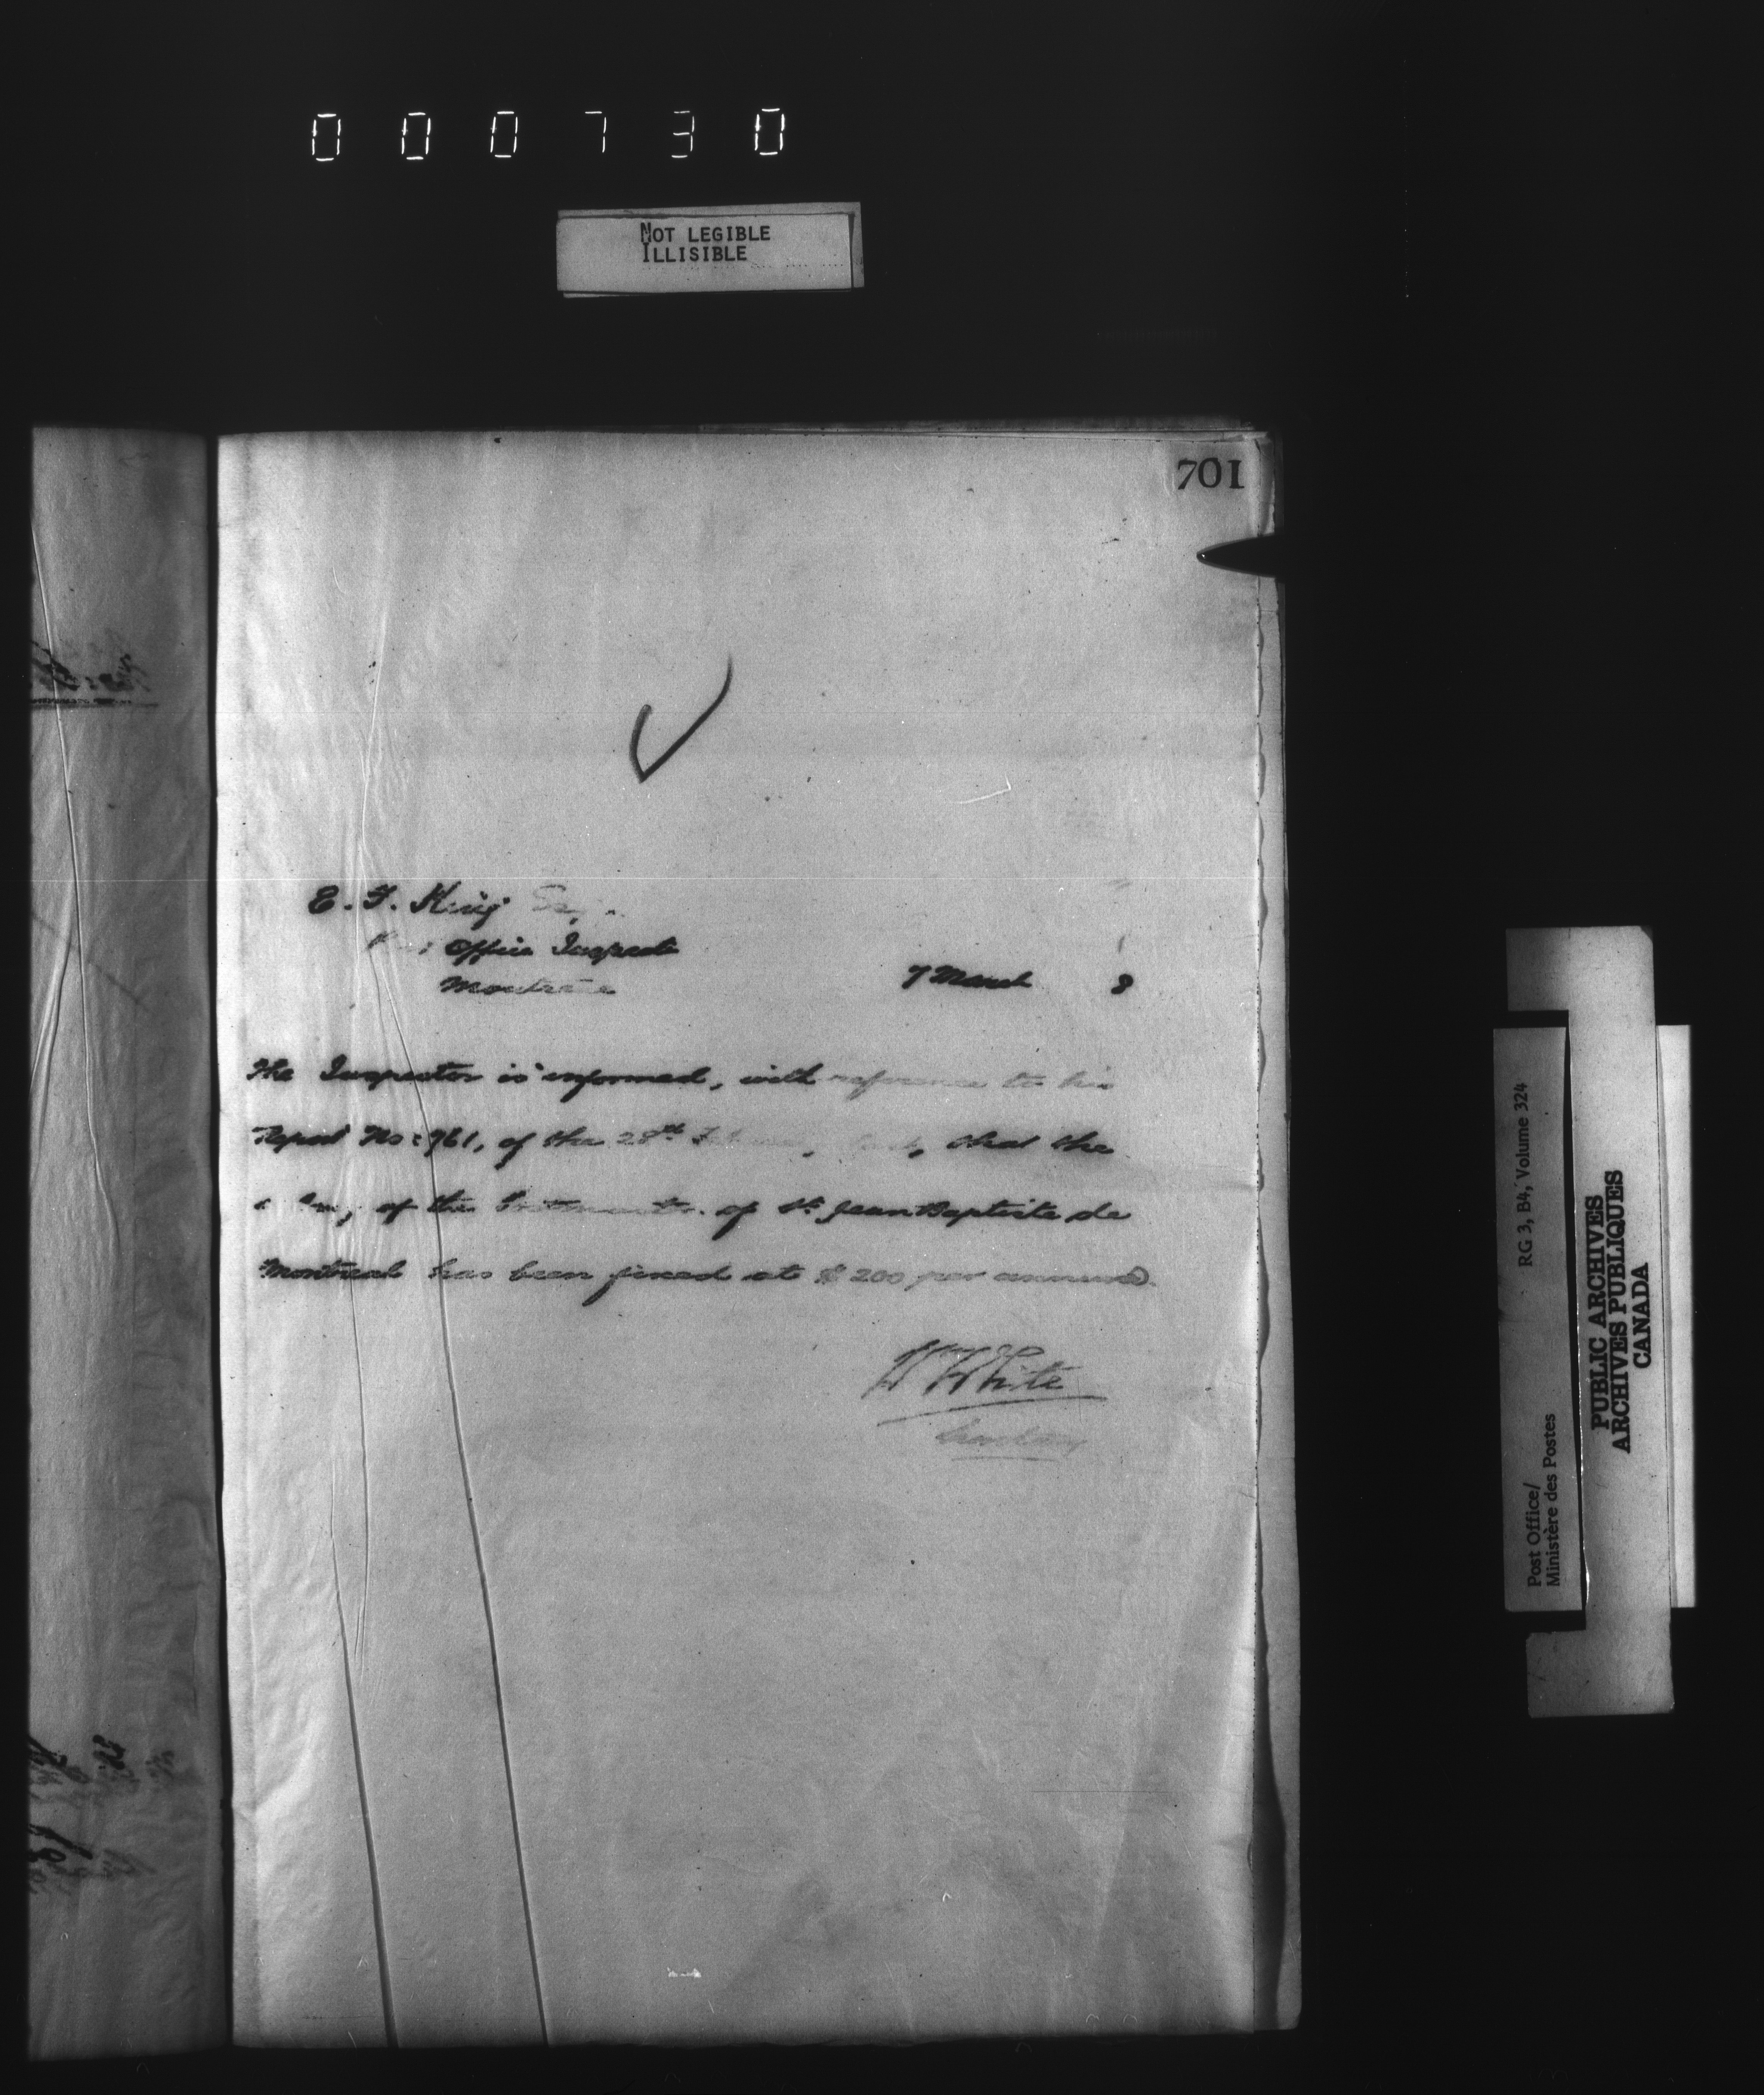 000730
NOT LEGIBLE
ILLISIBLE
701
E. F. King
Office Inspector
Montreal
7 March 8
The Inspector is informed, with reference to his
Report No: 961, of the 28th that the
of the Postmaster of St. Jean Baptiste de
Montreal has been fixed at $200 per annum.
W White
Secretary
RG 3, B4, Volume 324
Post Office/
Ministère des Postes
PUBLIC ARCHIVES
ARCHIVES PUBLIQUES
CANADA